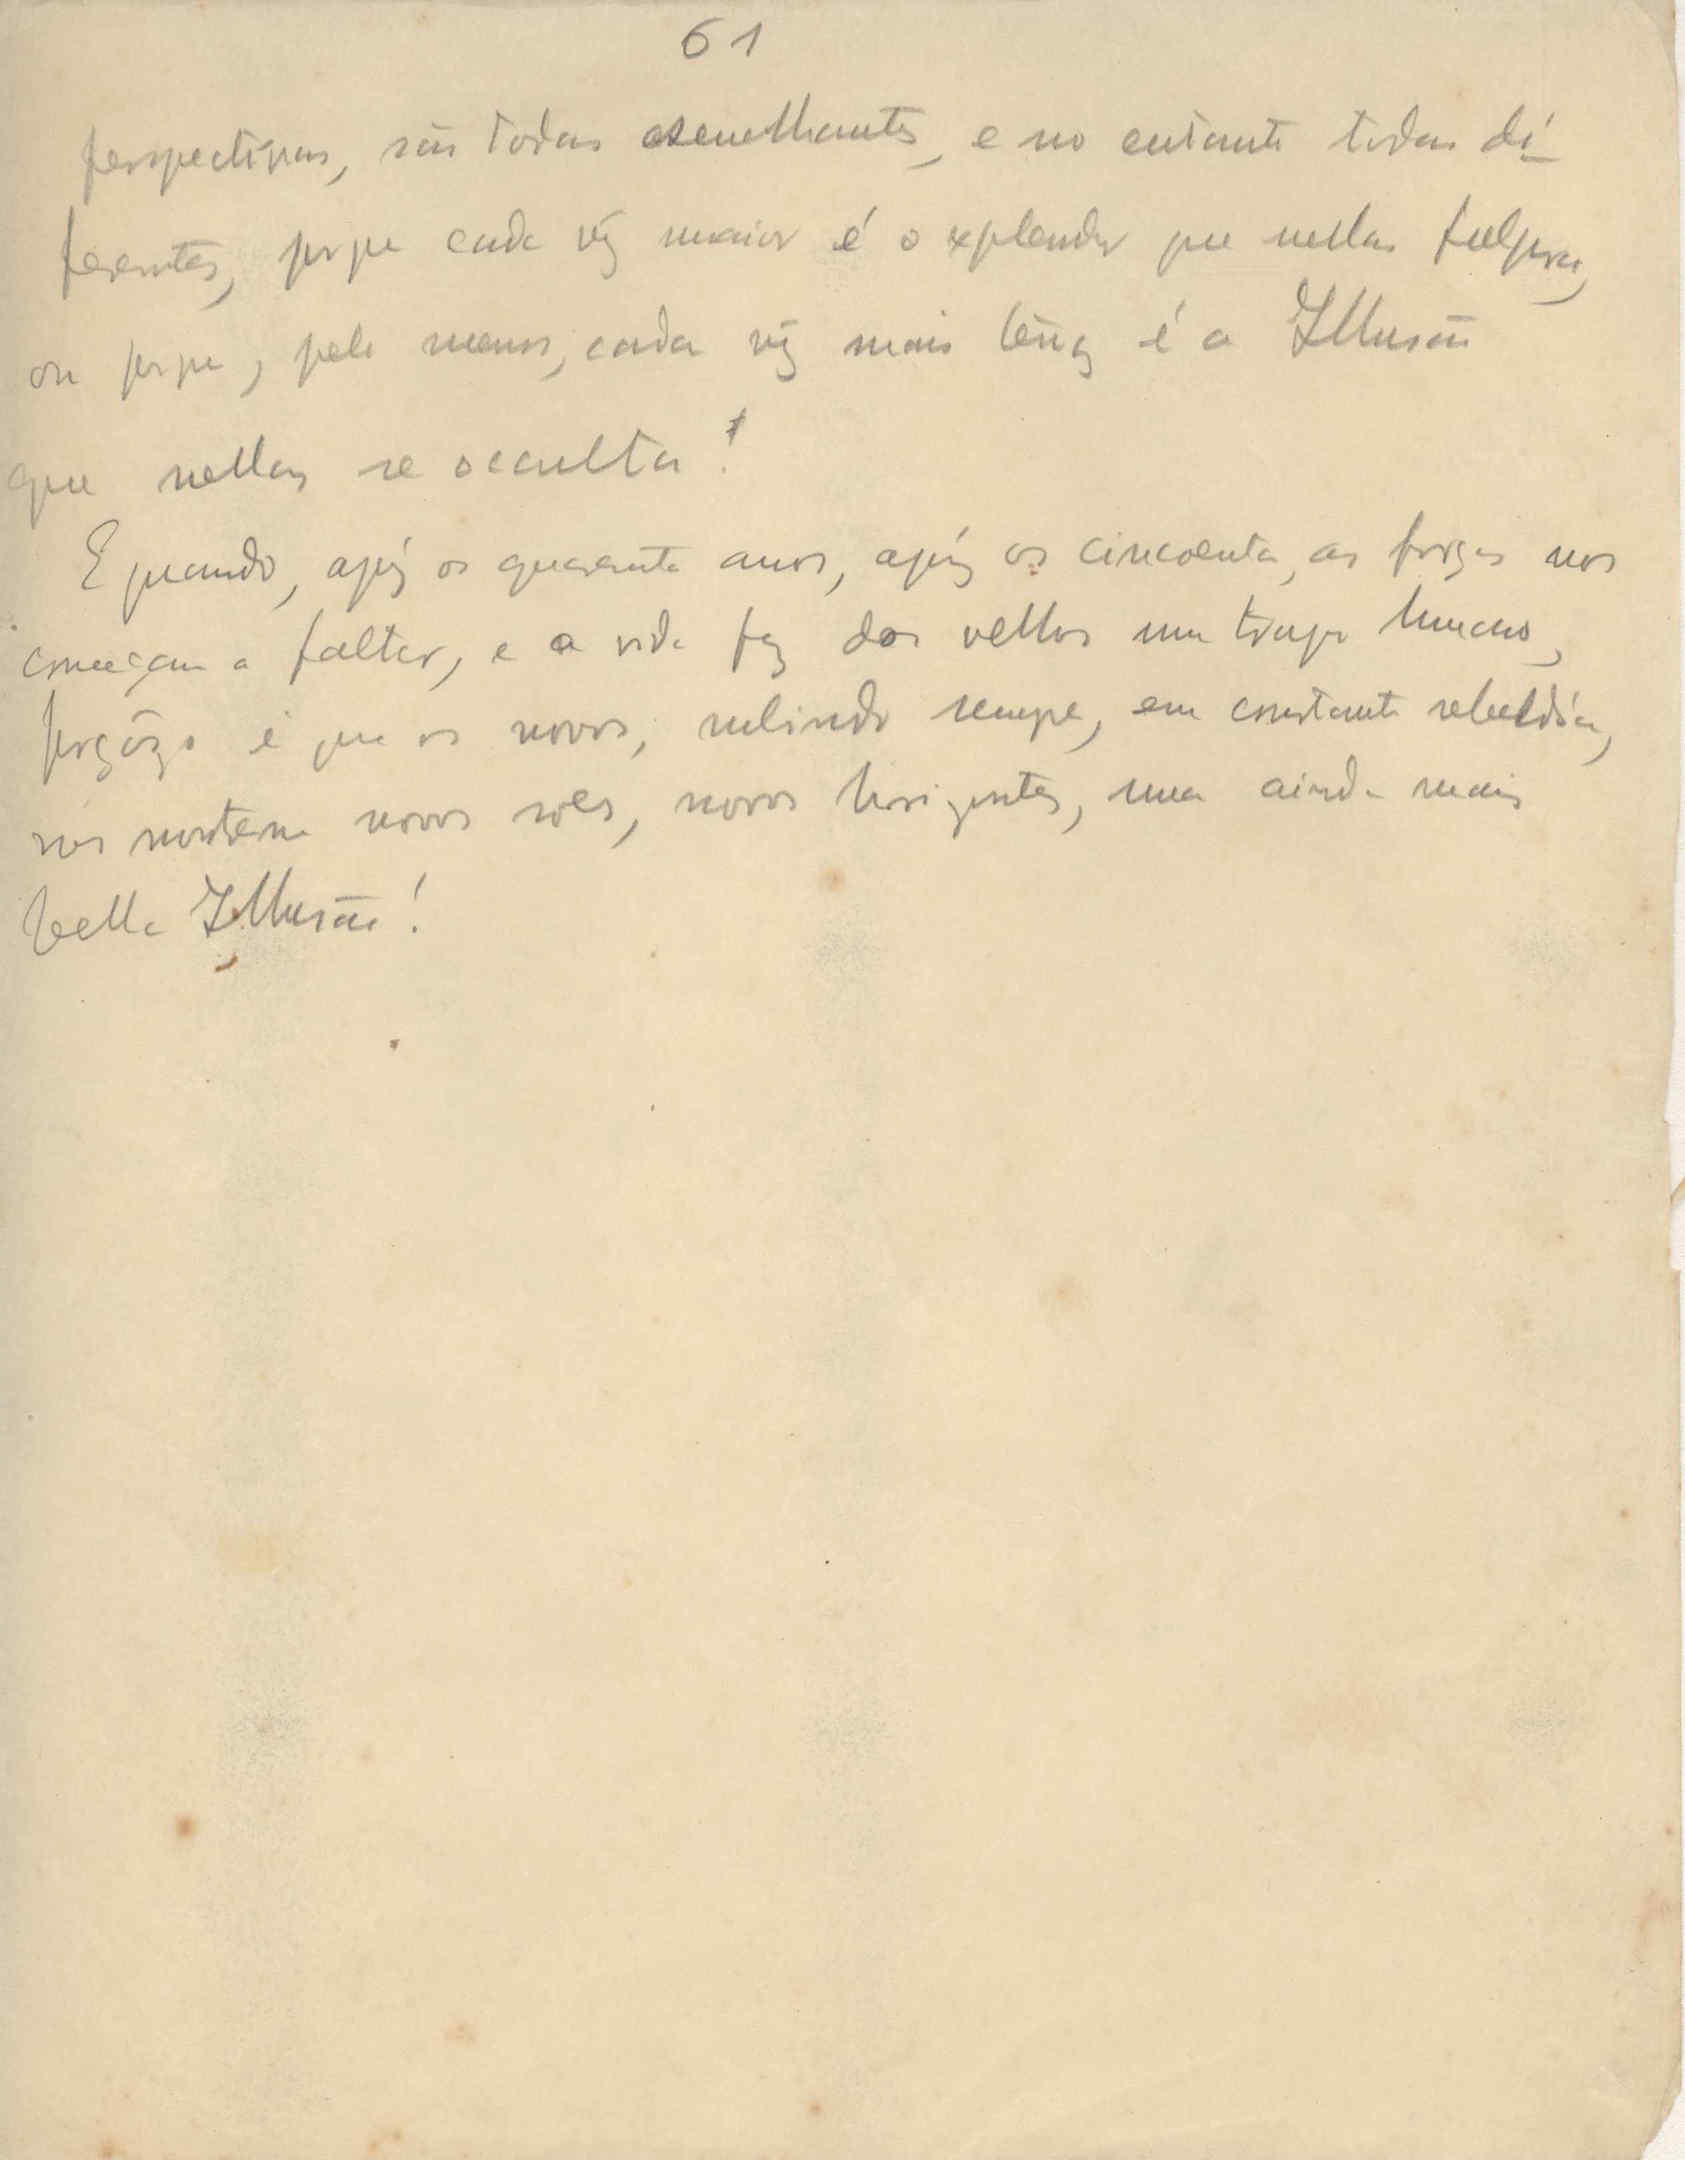 61
perspectivas, são todas asemelhantes, e no entanto todas di-
ferentes, porque cada vez maior é o explendor que nellas fulgura,
ou porque, pelo menos, cada vez mais é a Illusão
que nellas se occulta!
E quando, após os quarenta anos, após os cincoenta, as forças nos
começam a faltar, e a vida faz dos velhos um trapo humano,
forçôzo é que os novos, subindo sempre, em constante rebeldia,
nos mostrem novos sóes, novos horizontes, uma ainda mais
bella Illusão!